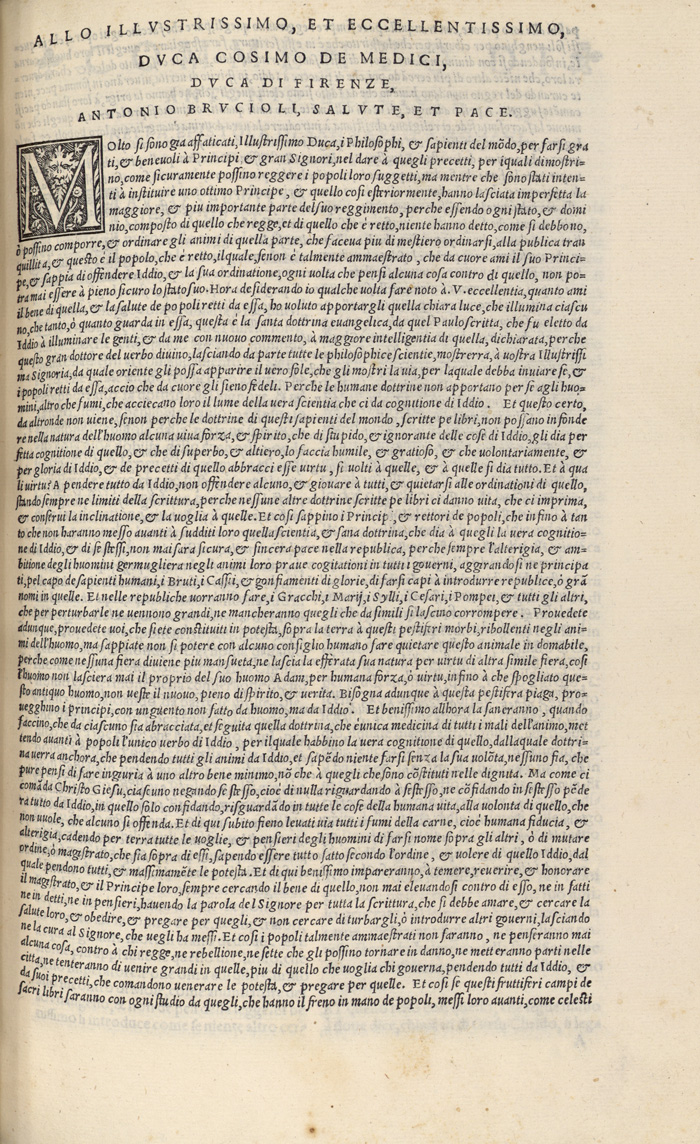 ALLO ILLVSTRISSIMO, ET ECCELLENTISSIMO,
DVCA COSIMO DE MEDICI,
DVCA DI FIRENZE,
ANTONIO BRVCIOLI, SALVTE, ET PACE.
MOlto si sono gia affaticati, Illustrissimo Duca, i Philosophi, & sapienti del mõdo, per farsi gra
ti, & beneuoli à Principi, & gran Signori, nel dare à quegli precetti, per iquali dimostri-
no, come sicuramente possino reggere i popoli loro suggetti, ma mentre che sono stati inten-
ti à instituire uno ottimo Principe, & quello cosi esteriormente, hanno lasciata imperfetta la
maggiore, & piu importante parte del suo reggimento, perche essendo ogni stato, & domi
nio, composto di quello che regge, et di quello che è retto, niente hanno detto, come si debbono,
ò possino comporre, & ordinare gli animi di quella parte, che faceua piu di mestiero ordinarsi, alla publica tran
quillita, & questo è il popolo, che è retto, il quale, se non è talmente ammaestrato, che da cuore ami il suo Princi-
pe, & sappia di offendere Iddio, & la sua ordinatione, ogni uolta che pensi alcuna cosa contro di quello, non po-
tra mai essere à pieno sicuro lo stato suo. Hora desiderando io qualche uolta fare noto à .V. eccellentia, quanto ami
il bene di quella, & la salute de popoli retti da essa, ho uoluto apportargli quella chiara luce, che illumina ciascu
no, che tanto, ò quanto guarda in essa, questa è la santa dottrina euangelica, da quel Paulo scritta, che fu eletto da
Iddio à illuminare le genti, & da me con nuouo commento, à maggiore intelligentia di quella, dichiarata, perche
questo gran dottore del uerbo diuino, lasciando da parte tutte le philosophice scientie, mostrerra, à uostra Illustrissi
ma Signoria, da quale oriente gli possa apparire il uero sole, che gli mostri la uia, per laquale debba inuiare se, &
i popoli retti da essa, accio che da cuore gli sieno fedeli. Perche le humane dottrine non apportano per se agli huo-
mini, altro che fumi, che acciecano loro il lume della uera scientia che ci da cognitione di Iddio. Et questo certo,
da altronde non uiene, se non perche le dottrine di questi sapienti del mondo, scritte pe libri, non possano infonde
re nella natura dell'huomo alcuna uiua forza, & spirito, che di stupido, & ignorante delle cose di Iddio, gli dia per
fetta cognitione di quello, & che di superbo, & altiero, lo faccia humile, & gratioso, & che uolontariamente, &
per gloria di Iddio, & de precetti di quello abbracci esse uirtu, si uolti à quelle, & à quelle si dia tutto. Et à qua
li uirtu? A pendere tutto da Iddio, non offendere alcuno, & giouare à tutti, & quietarsi alle ordinationi di quello,
stando sempre ne limiti della scrittura, perche nessune altre dottrine scritte pe libri ci danno uita, che ci imprima,
& construi la inclinatione, & la uoglia à quelle. Et cosi sappino i Principi, & rettori de popoli, che infino à tan
to che non haranno messo auanti à sudditi loro quella scientia, & sana dottrina, che dia à quegli la uera cognitio-
ne di Iddio, & di se stessi, non mai sara sicura, & sincera pace nella republica, perche sempre l'alterigia, & am-
bitione degli huomini germugliera negli animi loro praue cogitationi in tutti i gouerni, aggirandosi ne principa
ti, pel capo de sapienti humani, i Bruti, i Cassii, & gonfiamenti di glorie, di farsi capi à introdurre republice, ò grã
nomi in quelle. Et nelle republiche uorranno fare, i Gracchi, i Marij, i Sylli, i Cesari, i Pompei, & tutti gli altri,
che per perturbarle ne uennono grandi, ne mancheranno quegli che da simili si lascino corrompere. Prouedete
adunque, prouedete uoi, che siete constituiti in potesta, sopra la terra à questi pestiferi morbi, ribollenti negli ani-
mi dell'huomo, ma sappiate non si potere con alcuno consiglio humano fare quietare questo animale in domabile,
perche come nessuna fiera diuiene piu mansueta, ne lascia la efferata sua natura per uirtu di altra simile fiera, cosi
l'huomo non lasciera mai il proprio del suo huomo Adam, per humana forza, ò uirtu, infino à che spogliato que-
sto antiquo huomo, non ueste il nuouo, pieno di spirito, & uerita. Bisogna adunque à questa pestifera piaga, pro-
uegghino i principi, con unguento non fatto da huomo, ma da Iddio. Et benissimo allhora la saneranno, quando
faccino, che da ciascuno sia abracciata, et seguita quella dottrina, che è unica medicina di tutti i mali dell'animo, met
tendo auanti à popoli l'unico uerbo di Iddio, per ilquale habbino la uera cognitione di quello, dallaquale dottri-
na uerra anchora, che pendendo tutti gli animi da Iddio, et sapẽdo niente farsi senza la sua uolõta, nessuno fia, che
pure pensi di fare ingiuria à uno altro bene minimo, nõ che à quegli che sono cõstituti nelle dignita. Ma come ci
comãda Christo Giesu, ciascuno negando se stesso, cioè di nulla riguardando à se stesso, ne cõfidando in se stesso pẽde
ra tutto da Iddio, in quello solo confidando, risguardãdo in tutte le cose della humana uita, alla uolonta di quello, che
non uuole, che alcuno si offenda. Et di qui subito fieno leuati uia tutti i fumi della carne, cioè humana fiducia, &
alterigia, cadendo per terra tutte le uoglie, & pensieri degli huomini di farsi nome sopra gli altri, ò di mutare
ordine, ò magistrato, che sia sopra di essi, sapendo essere tutto fatto secondo l'ordine, & uolere di quello Iddio, dal
quale pendono tutti, & massimamẽte le potesta. Et di qui benissimo impareranno, à temere, reuerire, & honorare
il magistrato, & il Principe loro, sempre cercando il bene di quello, non mai eleuandosi contro di esso, ne in fatti
ne in detti, ne in pensieri, hauendo la parola del Signore per tutta la scrittura, che si debbe amare, & cercare la
salute loro, & obedire, & pregare per quegli, & non cercare di turbargli, ò introdurre altri gouerni, lasciando
ne la cura al Signore, che uegli ha messi. Et cosi i popoli talmente ammaestrati non faranno, ne penseranno mai
alcuna cosa, contro à chi regge, ne rebellione, ne sette che gli possino tornare in danno, ne metteranno parti nelle
citta, ne tenteranno di uenire grandi in quelle, piu di quello che uoglia chi gouerna, pendendo tutti da Iddio, &
da suoi precetti, che comandono uenerare le potesta, & pregare per quelle. Et cosi se questi fruttiferi campi de
sacri libri saranno con ogni studio da quegli, che hanno il freno in mano de popoli, messi loro auanti, come celesti